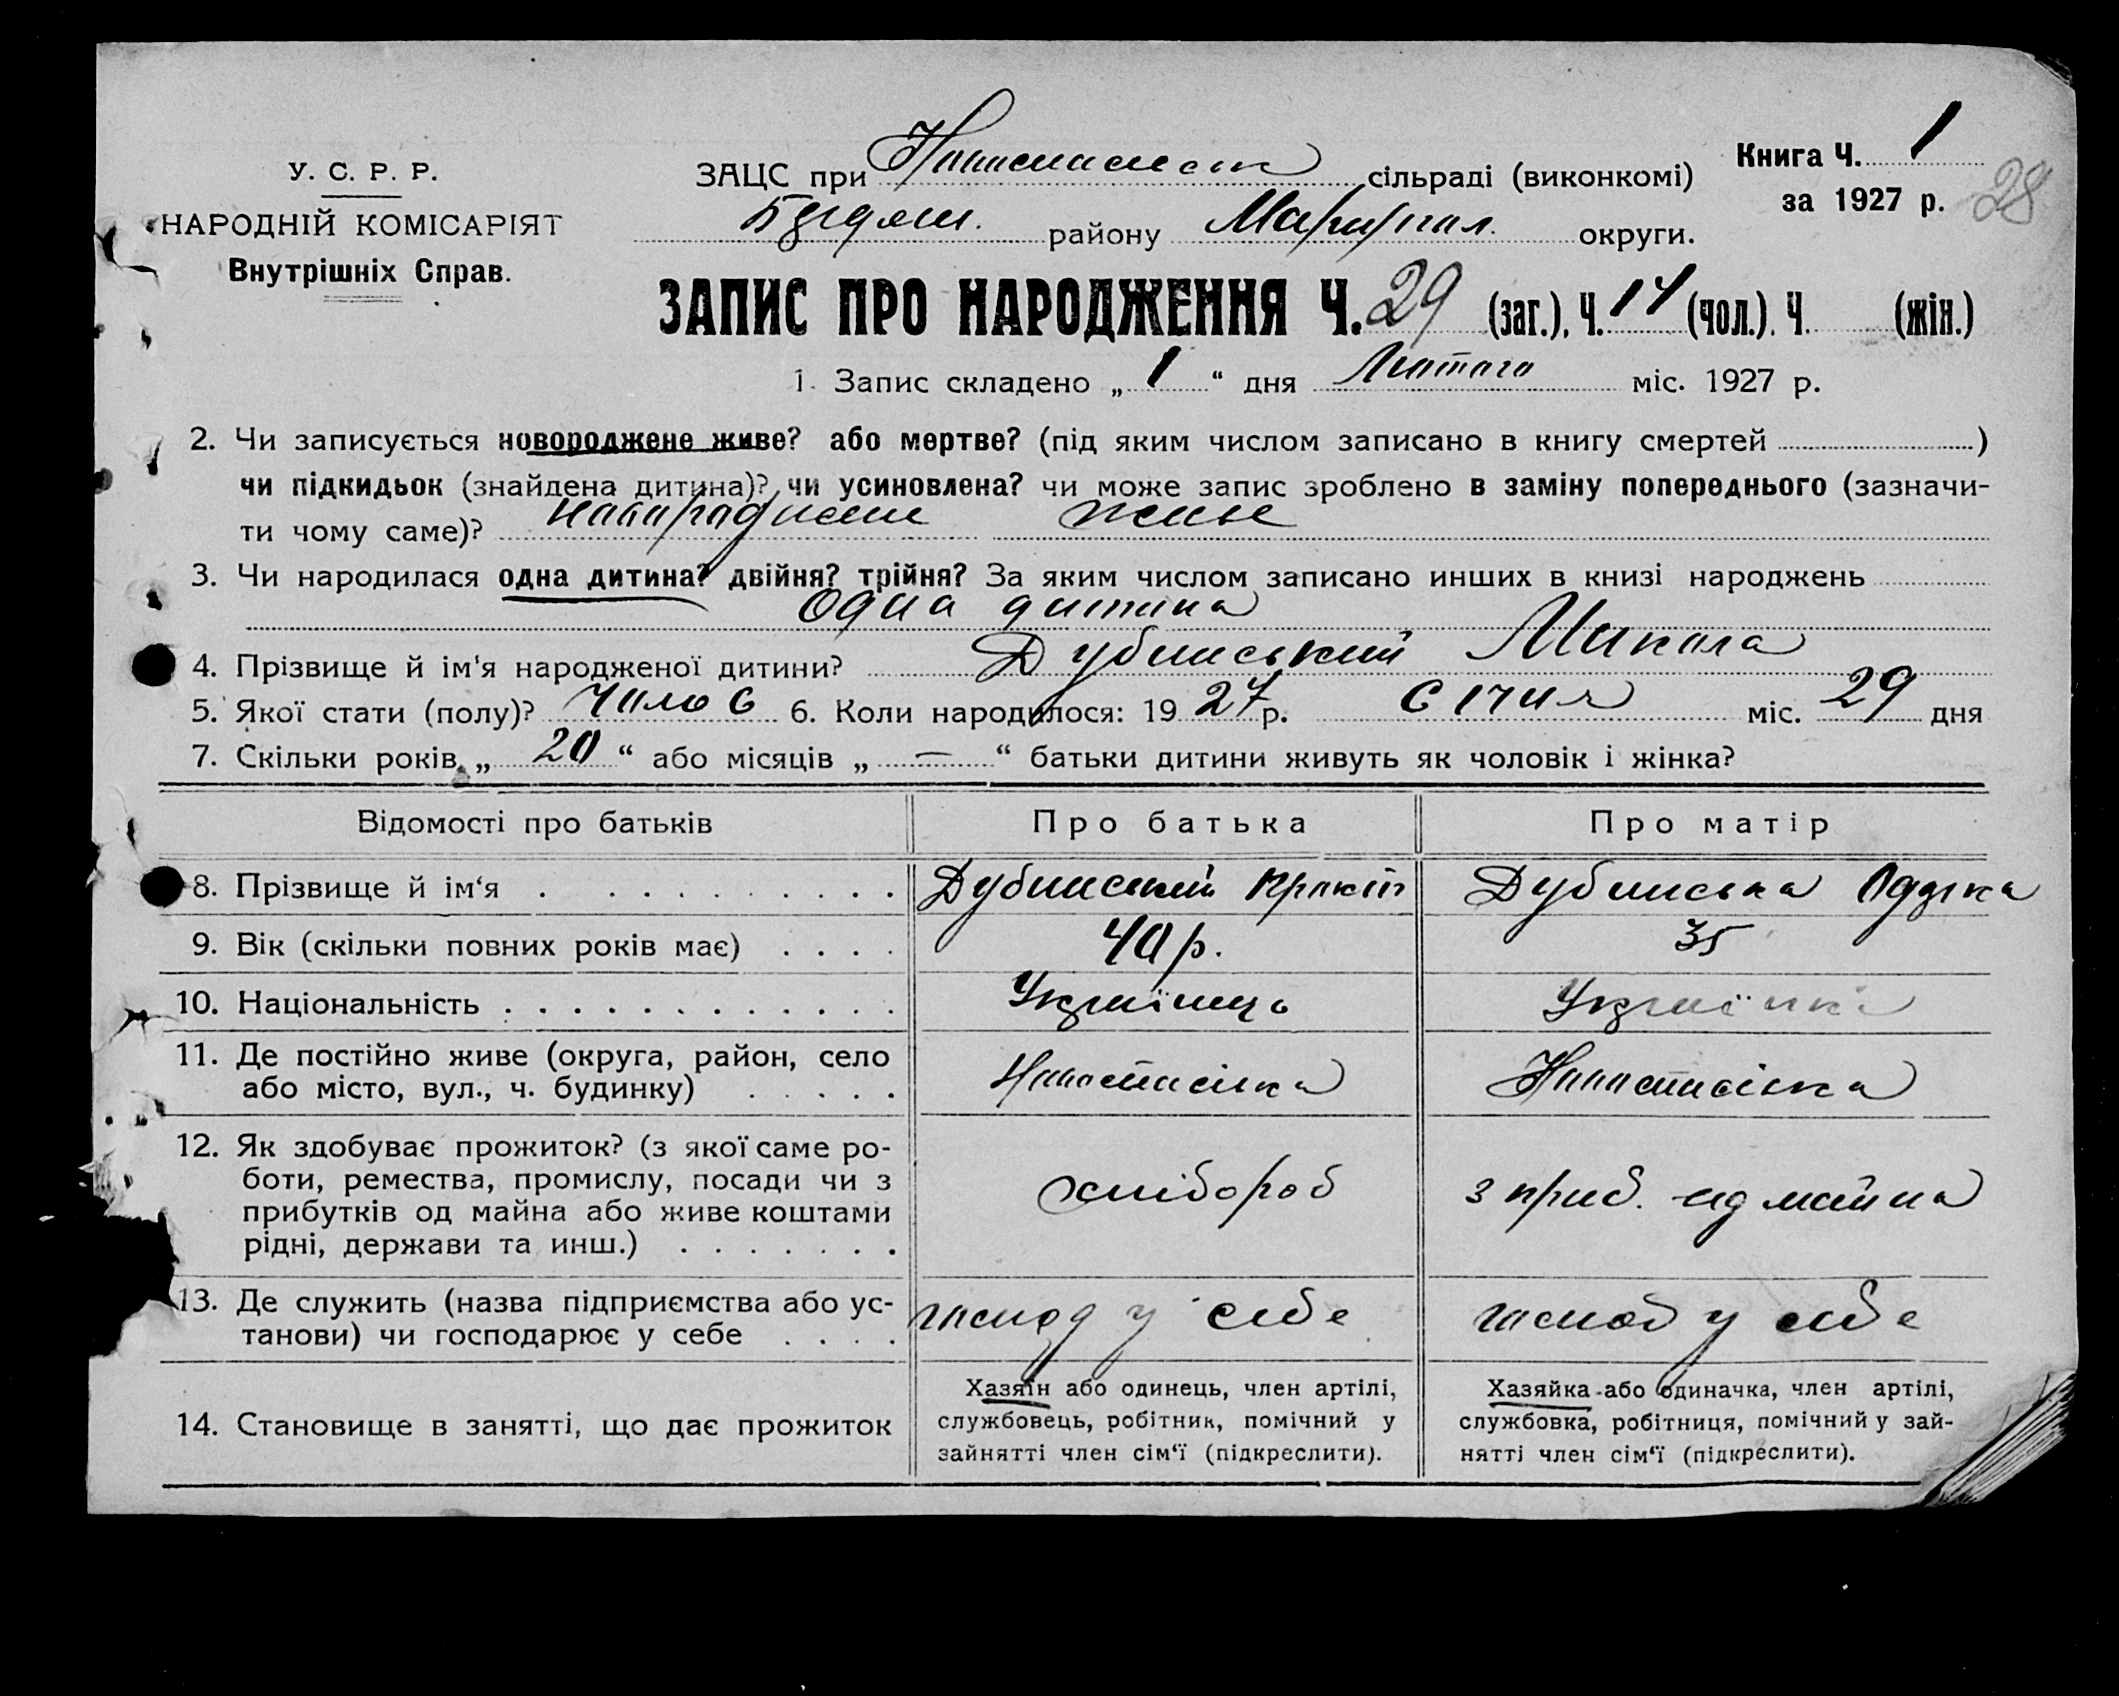 У. С. Р. Р.
НАРОДНІЙ КОМІСАРІЯТ
Внутрішніх Справ.
ЗАЦС при сільраді (виконкомі)
району Маріупал. округи.
Книга Ч. 1
за 1927 р. 28
ЗАПИС ПРО НАРОДЖЕННЯ Ч. 29 (заг.), Ч. 14 (чол.). Ч. (жін.)
1. Запис складено „ 1 “ дня Лютого міс. 1927 р.
2. Чи записується новороджене живе? або мертве? (під яким числом записано в книгу смертей )
чи підкидьок (знайдена дитина)? чи усиновлена? чи може запис зроблено в заміну попереднього (зазначи-
ти чому саме)? живе
3. Чи народилася одна дитина? двійня? трійня? За яким числом записано инших в книзі народжень
одна дитина
4. Прізвище й ім‘я народженої дитини? Дубинський Микола
5. Якої стати (полу)? 6. Коли народилося: 19 27 р. Січня міс. 29 дня
7. Скільки років „ 20 “ або місяців „ — “ батьки дитини живуть як чоловік і жінка?
Відомості про батьків Про батька Про матір
8. Прізвище й ім‘я Дубинський Дубинська
9. Вік (скільки повних років має) 40 р. 35
10. Національність Українець Українка
11. Де постійно живе (округа, район, село
або місто, вул., ч. будинку)
12. Як здобуває прожиток? (з якої саме ро-
боти, ремества, промислу, посади чи з
прибутків од майна або живе коштами
рідні, держави та инш.) хлібороб з приб. од майна
13. Де служить (назва підприємства або ус-
танови) чи господарює у себе господ у себе господ у себе
14. Становище в занятті, що дає прожиток
Хазяїн або одинець, член артілі,
службовець, робітник, помічний у
зайнятті член сім‘ї (підкреслити).
Хазяйка або одиначка, член артілі,
службовка, робітниця, помічний у зай-
нятті член сім‘ї (підкреслити).